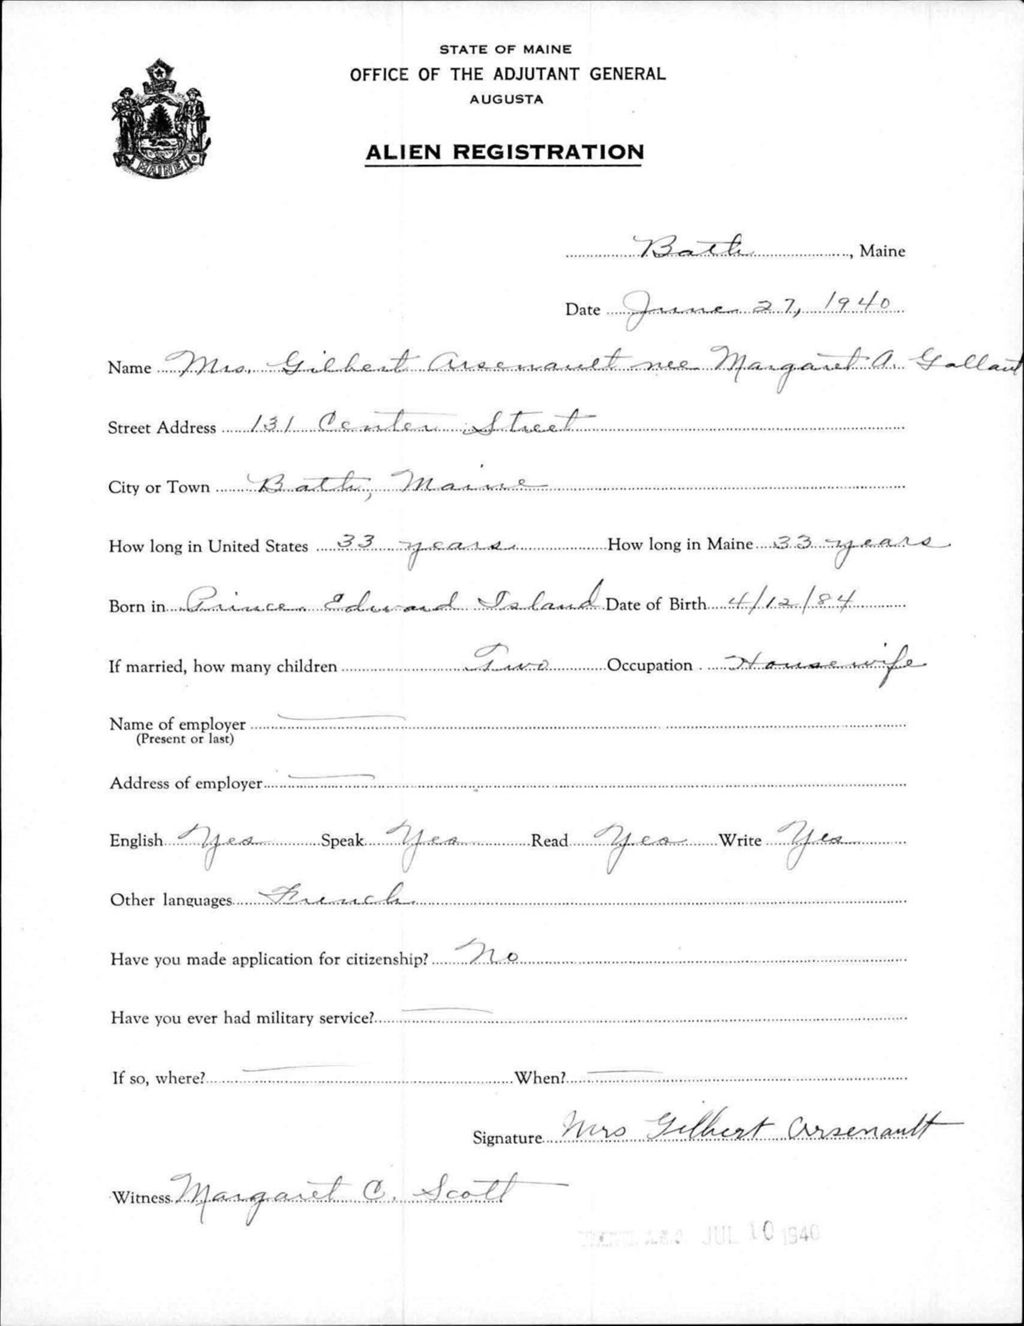 STATE OF MAINE
OFFICE OF THE ADJUTANT GENERAL
AUGUSTA
ALIEN REGISTRATION
MAINE
Bath, Maine
Date June 27, 1940
Name Mrs. Gilbert Arsenault nee Margaret A. Gallant
Street Address 131 Center Street
City or Town Bath, Maine
How long in United States 33 years How long in Maine 33 years
Born in Prince Edward Island Date of Birth 4/12/84
If married, how many children Two Occupation Housewife
Name of employer
(Present or last)
Address of employer
English Yes Speak Yes Read Yes Write Yes
Other languages French
Have you made application for citizenship? No
Have you ever had military service?
If so, where? When?
Signature Mrs Gilbert Arsenault
Witness Margaret C. Scott
JUL 10 1940